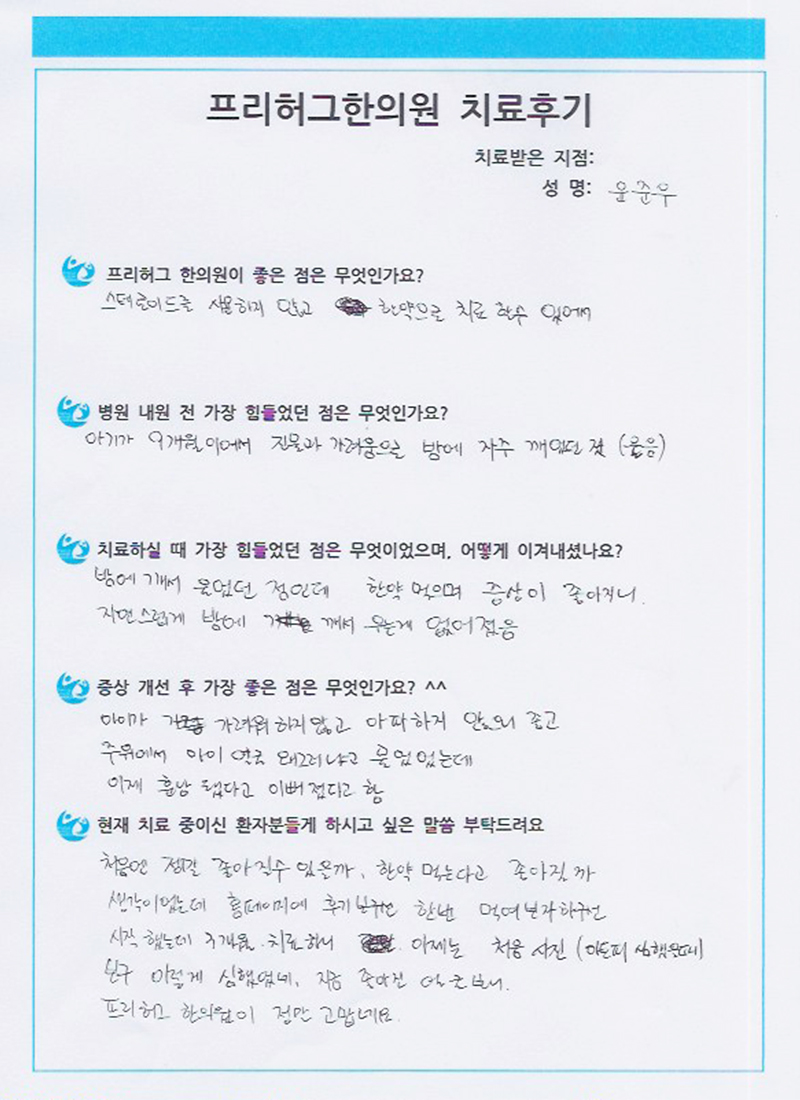 프리허그한의원 치료후기
치료받은 지점:
성 명: 윤준우
프리허그 한의원이 좋은 점은 무엇인가요?
스테로이드를 사용하지 않고 한약으로 치료 할수 있어서
병원 내원 전 가장 힘들었던 점은 무엇인가요?
아기가 9개월이어서 진물과 가려움으로 밤에 자주 깨었던 것 (울음)
치료하실 때 가장 힘들었던 점은 무엇이었으며, 어떻게 이겨내셨나요?
밤에 깨서 울었던 점인데 한약 먹으며 증상이 좋아지니.
자연스럽게 밤에 깨서 우는게 없어졌음
증상 개선 후 가장 좋은 점은 무엇인가요? ^^
아이가 가려워 하지않고 아파하지 않으니 좋고
주위에서 아이 얼굴 왜그러냐고 물었었는데
이제 훈남 됐다고 이뻐졌다고 함
현재 치료 중이신 환자분들게 하시고 싶은 말씀 부탁드려요
처음엔 정말 좋아질수 있을까, 한약 먹는다고 좋아질까
생각이었는데 홈페이지에 후기 한번 먹여보자하구선
시작했는데 3개월 치료하니 이제는 처음 사진 (아토피 심했을때)
보구 이렇게 심했었네, 지금 좋아진 얼굴보니.
프리허그 한의원이 정말 고맙네요.